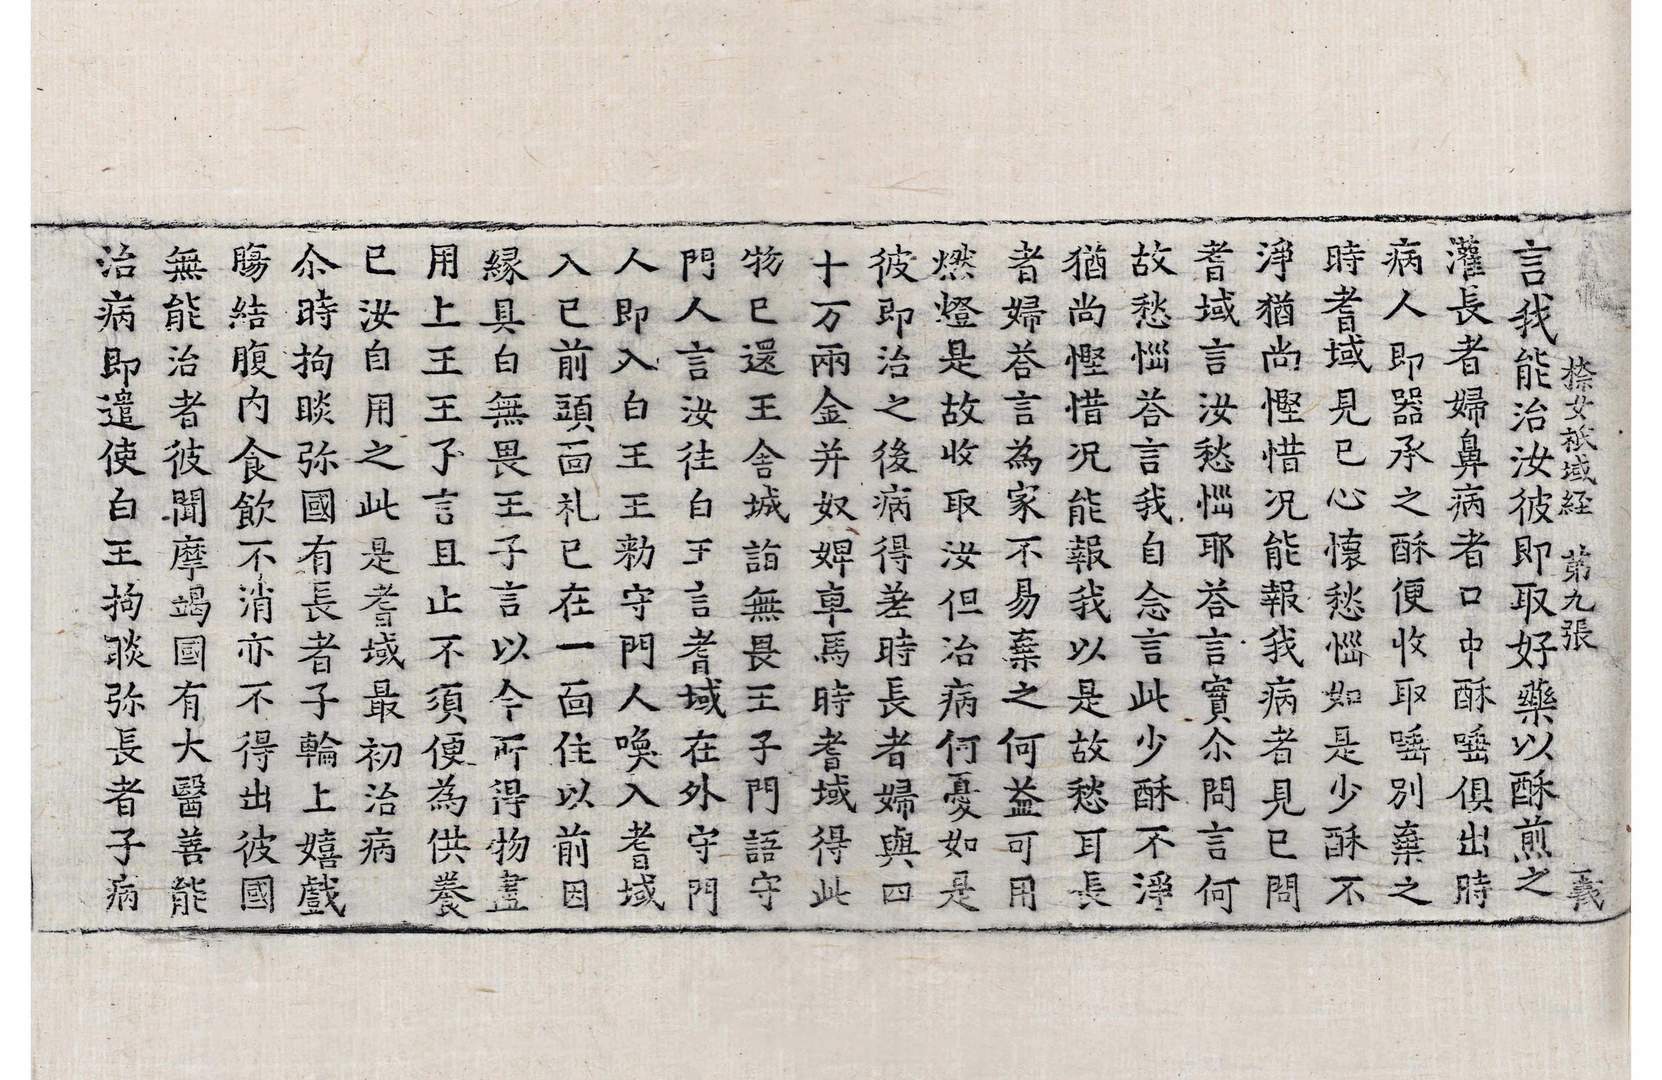 㮈女祇域経 第九張 義
言我能治汝彼即取好藥以酥煎之
灌長者婦鼻病者口中酥唾俱出時
病人即器承之酥便收取唾別棄之
時耆域見已心懷愁惱如是少酥不
淨猶尚慳惜况能報我病者見已問
耆域言汝愁惱耶荅言實尒問言何
故愁惱荅言我自念言此少酥不淨
猶尚慳惜况能報我以是故愁耳長
者婦荅言為家不易棄之何益可用
燃燈是故收取汝但治病何憂如是
彼即治之後病得差時長者婦與四
十万兩金并奴婢車馬時耆域得此
物已還王舍城詣無畏王子門語守
門人言汝徃白王言耆域在外守門
人即入白王王勑守門人喚入耆域
入已前頭面礼已在一面住以前因
緣具白無畏王子言以今所得物盡
用上王王子言且止不須便為供養
已汝自用之此是耆域最初治病
尒時拘睒弥國有長者子輪上嬉戲
腸結腹內食飲不消亦不得出彼國
無能治者彼聞摩竭國有大醫善能
治病即遣使白王拘睒弥長者子病